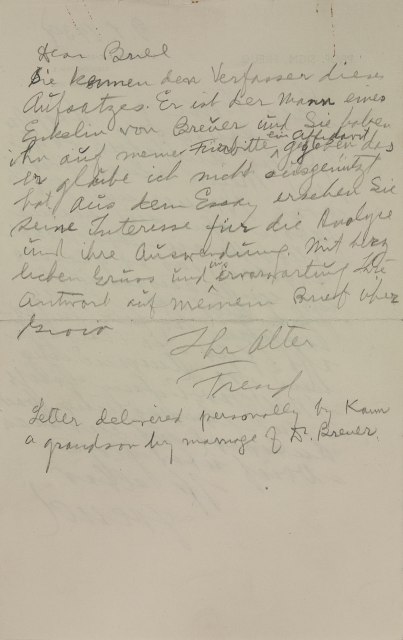 Dear Brill
Sie kennen den Verfasser dieses
Aufsatzes. Er ist der Mann einer
Enkelin von Breuer und Sie haben
ihn auf meine Fürbitte ein Affidavit gegeben das
er glaube ich nicht ausgenützt
hat. Aus dem Essay ersehen Sie
seine Interesse für die Analyse
und ihre Auswendung. Mit herz
lichen Gruss und in Erwartung Ihre
Antwort auf meinem Brief über
Ihr Alter
Freud
Letter delivered personally by
a grandson by marriage of Dr. Breuer.